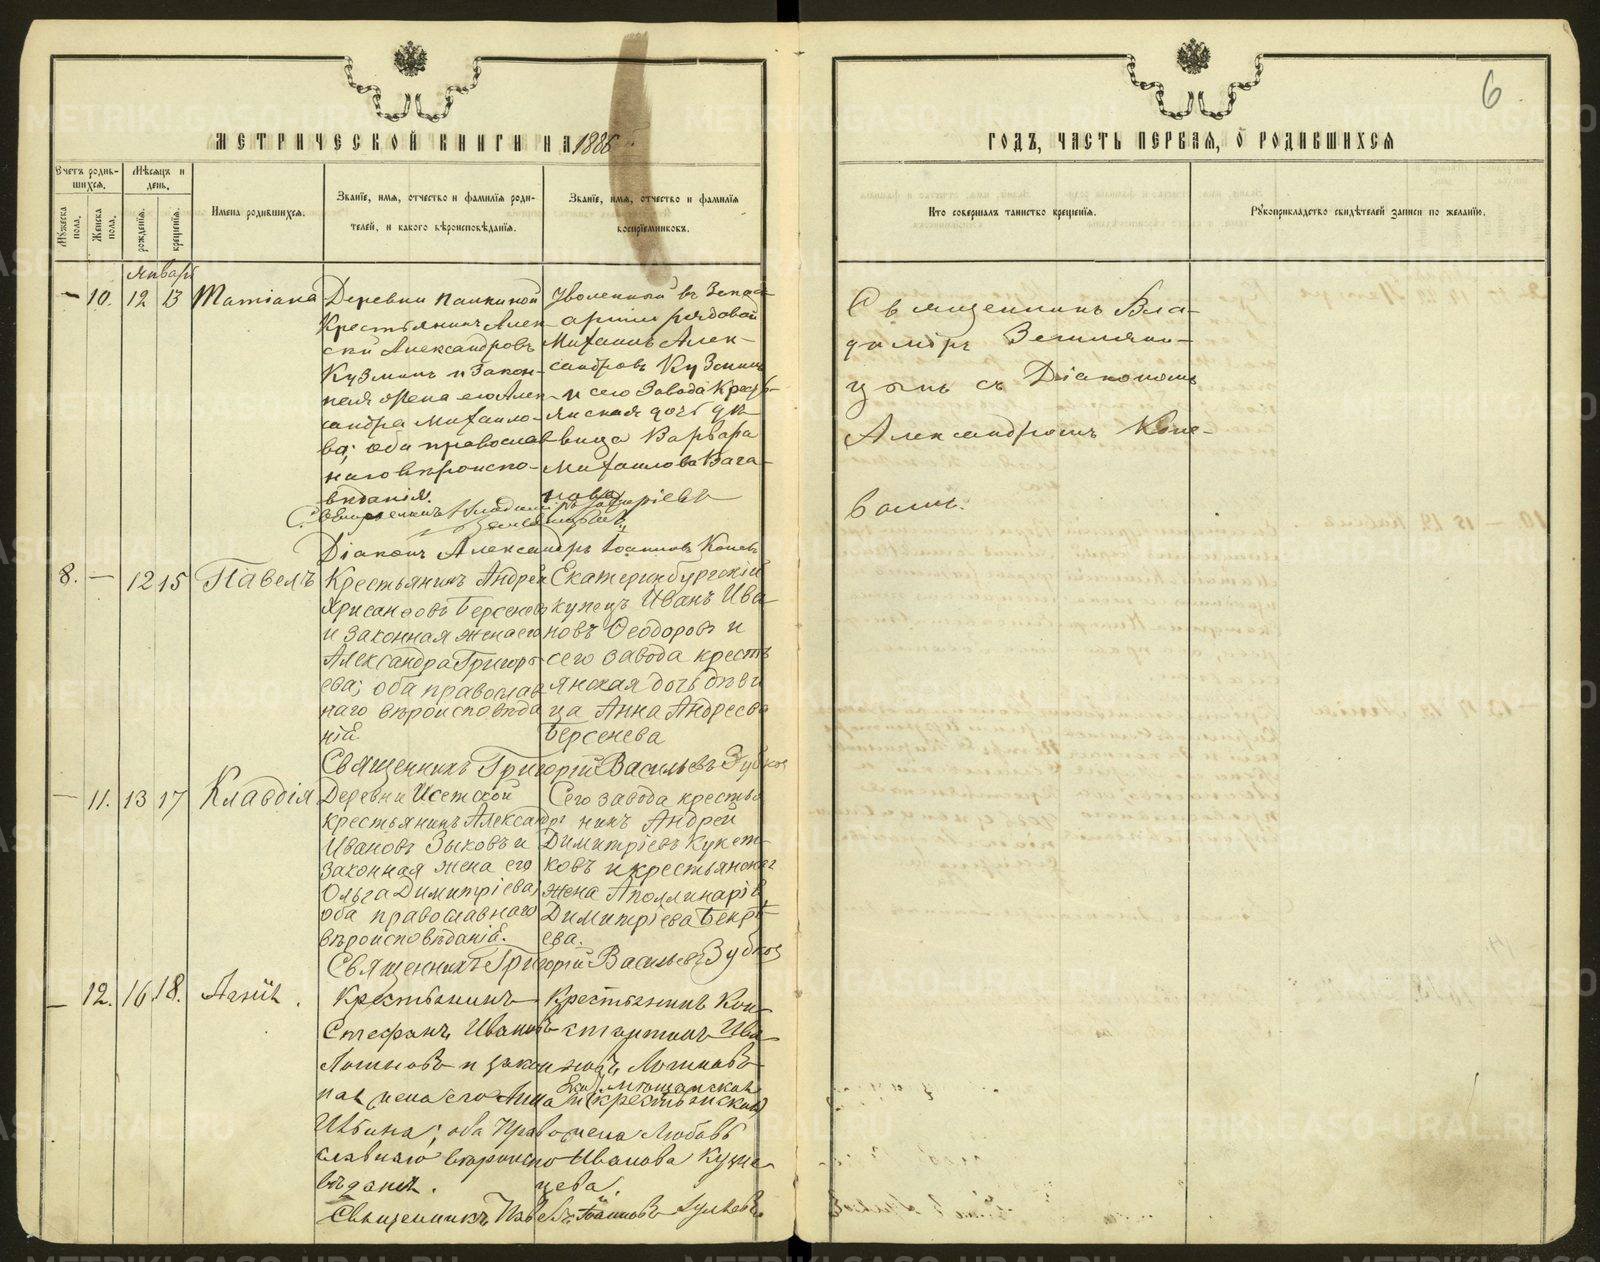 МЕТРИЧЕСКОЙ КНИГИ НА 1886
Счетъ родив-
шихся.
Мужеска
пола.
Женска
пола.
Мѣсяцъ и
день.
рожденія.
крещенія.
Имена родившихся.
Званіе, имя, отчество и фамилія роди-
телей, и какого вѣроисповѣданія.
Званіе, имя, отчество и фамилія
воспріемниковъ.
Январь
— 10. 12 13 Татіана
Деревни Палкиной
Крестьянинъ Алек
сѣй Александровъ
Кузминъ и закон-
ная жена его Алек-
сандра Михаило-
ва; оба православ
наго вѣроиспо-
вѣданія.
Уволенный въ Запас
арміи рядовой
Михаилъ Алек-
сандровъ Кузминъ
и сего Завода Кресть-
янская дочь дѣ-
вица Варвара
Михаилова Вага-
нова
Священникъ Владиміръ
Діаконъ Александръ Іоанновъ Коневъ
8. — 12 15 Павелъ
Крестьянинъ Андрей
Хрисанфовъ Берсеневъ
и законная жена его
Александра Григорь
ева; оба православ
наго вѣроисповѣда
нія.
Екатеринбургскій
купецъ Иванъ Ива
новъ Ѳеодоровъ и
сего завода кресть
янская дочь дѣви
ца Анна Андреева
Берсенева
Священникъ Григорій Васильевъ Зубковъ
— 11. 13 17 Клавдія
Деревни Исетской
крестьянинъ Александръ
Ивановъ Зыковъ и
законная жена его
Ольга Димитріева;
оба православнаго
вѣроисповѣданія.
Сего завода кресть
нинъ Андрей
Димитріевъ Кукет-
ковъ и крестьянская
жена Аполлинарія
Димитріева Бекрѣ-
ева.
Священникъ Григорій Васильевъ Зубковъ
— 12. 16 18.
Крестьянинъ
Стефанъ Ивановъ
Логиновъ и закон
ная жена его Анна
Ильина; оба Право
славнаго вѣроиспо
вѣданія.
Крестьянинъ Кон-
стантинъ Ива
новъ Логиновъ
и (крестьянская)
жена Любовь
Иванова Кузне-
цева.
Священникъ Павелъ Іоанновъ
6
ГОДЪ, ЧАСТЬ ПЕРВАЯ, О РОДИВШИХСЯ
Кто совершалъ таинство крещенія.
Рукоприкладство свидѣтелей записи по желанію.
Священникъ Вла-
диміръ Земляни-
цынъ съ Діакономъ
Александромъ Коне-
вымъ.
METRIKI.GASO-URAL.RU